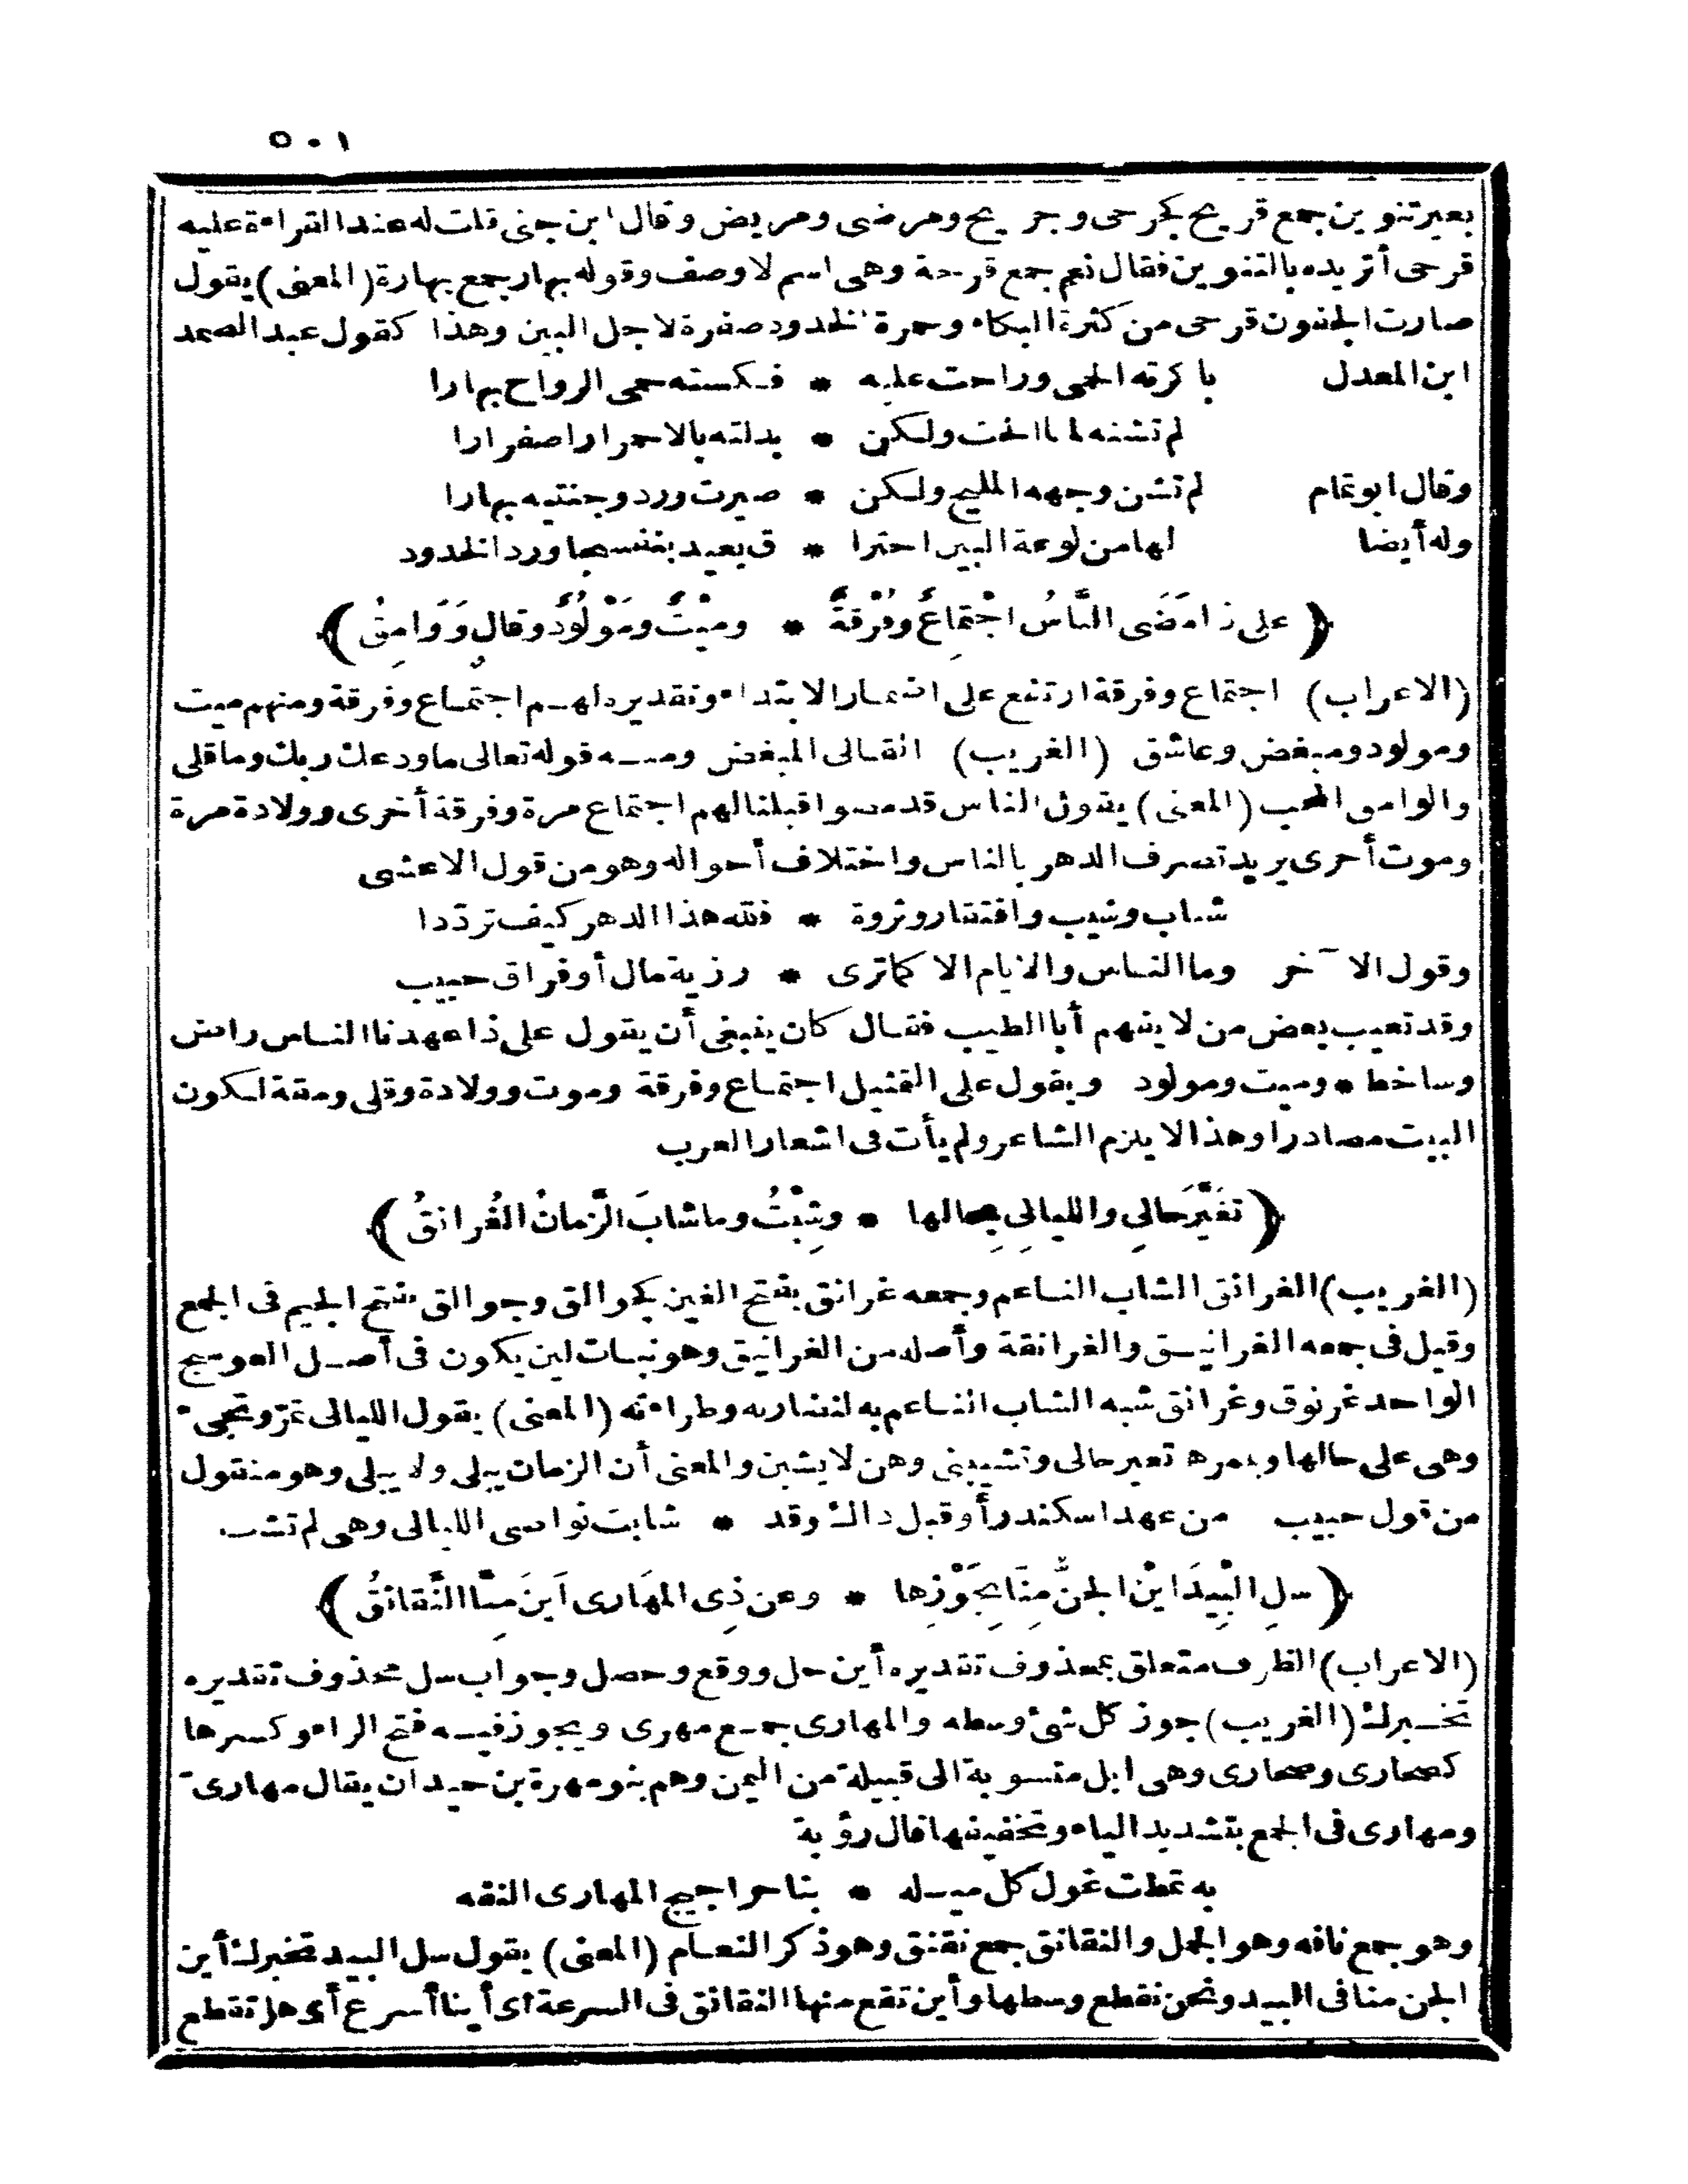 ٥٠١
بغير تنوين جمع قريح كجرحى وجريح ومرضى ومريض وقال ابن جنى قلت له عند القراءة عليه
قرحى أتريده بالتنوين فقال نعم جمع قرحة وهى اسم لا وصف وقوله بهار جمع بهارة (المعنى) يقول
صارت الجفون قرحى من كثرة البكاء وحمرة الخدود صفرة لاجل البين وهذا كقول عبد الصمد
ابن المعدل باكرته الحمى وراحت عليه * فكسته حمى الرواح بهارا
لم تشنه لما الحت ولكن * بدلته بالاحمرار اصفرارا
وقال ابو تمام لم تشن وجهه المليح ولكن * صيرت ورد وجنتيه بهارا
وله أيضا لها من لوعة البين احترا * ق يعيد بنفسجا ورد الخدود
(على ذا مَضَى النَّاسُ اجْتِماعٌ وفُرْقَةٌ * ومَيْتٌ ومَوْلُودٌ وقالٍ وَوَامِقُ)
(الاعراب) اجتماع وفرقة ارتفع على اضمار الابتداء وتقديره لهم اجتماع وفرقة ومنهم ميت
ومولود ومبغض وعاشق (الغريب) القالى المبغض ومنه قوله تعالى ما ودعك ربك وما قلى
والوامق المحب (المعنى) يقول الناس قد مضوا قبلنا لهم اجتماع مرة وفرقة أخرى وولادة مرة
وموت أخرى يريد تصرف الدهر بالناس واختلاف أحواله وهو من قول الاعشى
شباب وشيب وافتقار وثروة * فلله هذا الدهر كيف تردّدا
وقول الآخر وما الناس والايام الا كما ترى * رزية مال أو فراق حبيب
وقد تعيب بعض من لا يفهم أبا الطيب فقال كان ينبغى أن يقول على ذا عهدنا الناس راض
وساخط * وميت ومولود ويقول على التمثيل اجتماع وفرقة وموت وولادة وقلى ومقة لكون
البيت مصادرا وهذا لا يلزم الشاعر ولم يأت فى اشعار العرب
(تَغَيَّرَ حَالِى والليالِى بِحالها * وشِبْتُ وما شابَ الزَّمانُ الغُرانِقُ)
(الغريب) الغرانق الشاب الناعم وجمعه غرانق بفتح الغين كجوالق وجوالق بفتح الجيم فى الجمع
وقيل فى جمعه الغرانيق والغرانقة وأصله من الغرانيق وهو نبات لين يكون فى أصل العوسج
الواحد غرنوق وغرانق شبه الشاب الناعم به لنضارته وطراءته (المعنى) يقول الليالى تمرّ وتجىء
وهى على حالها وبمره تغير حالى وتشيبنى وهن لا يشبن والمعنى أن الزمان يبلى ولا يبلى وهو منقول
من قول حبيب من عهد اسكندر أو قبل ذالك وقد * شابت نواصى الليالى وهى لم تشب
(سلِ البِيدَ ايْنَ الجنُّ مِنَّا بِجَوْزِها * وعن ذِى المَهَارى اَيْنَ مِنْها النَّقانِقُ)
(الاعراب) الظرف متعلق بمحذوف تقديره أين حل ووقع وحصل وجواب سل محذوف تقديره
تخبرك (الغريب) جوز كل شئ وسطه والمهارى جمع مهرى ويجوز فيه فتح الراء وكسرها
كصحارى وصحارى وهى ابل منسوبة الى قبيلة من اليمن وهم بنو مهرة بن حيدان يقال مهارىّ
ومهارى فى الجمع بتشديد الياء وتخفيفها قال رؤبة
به تمطت غول كل ميله * بنا حراجيج المهارى النفه
وهو جمع نافه وهو الجمل والنقانق جمع نقنق وهو ذكر النعام (المعنى) يقول سل البيد تخبرك أين
الجن منا فى البيد ونحن نقطع وسطها وأين تقع منها النقانق فى السرعة اى أينا أسرع أى هل تقطع